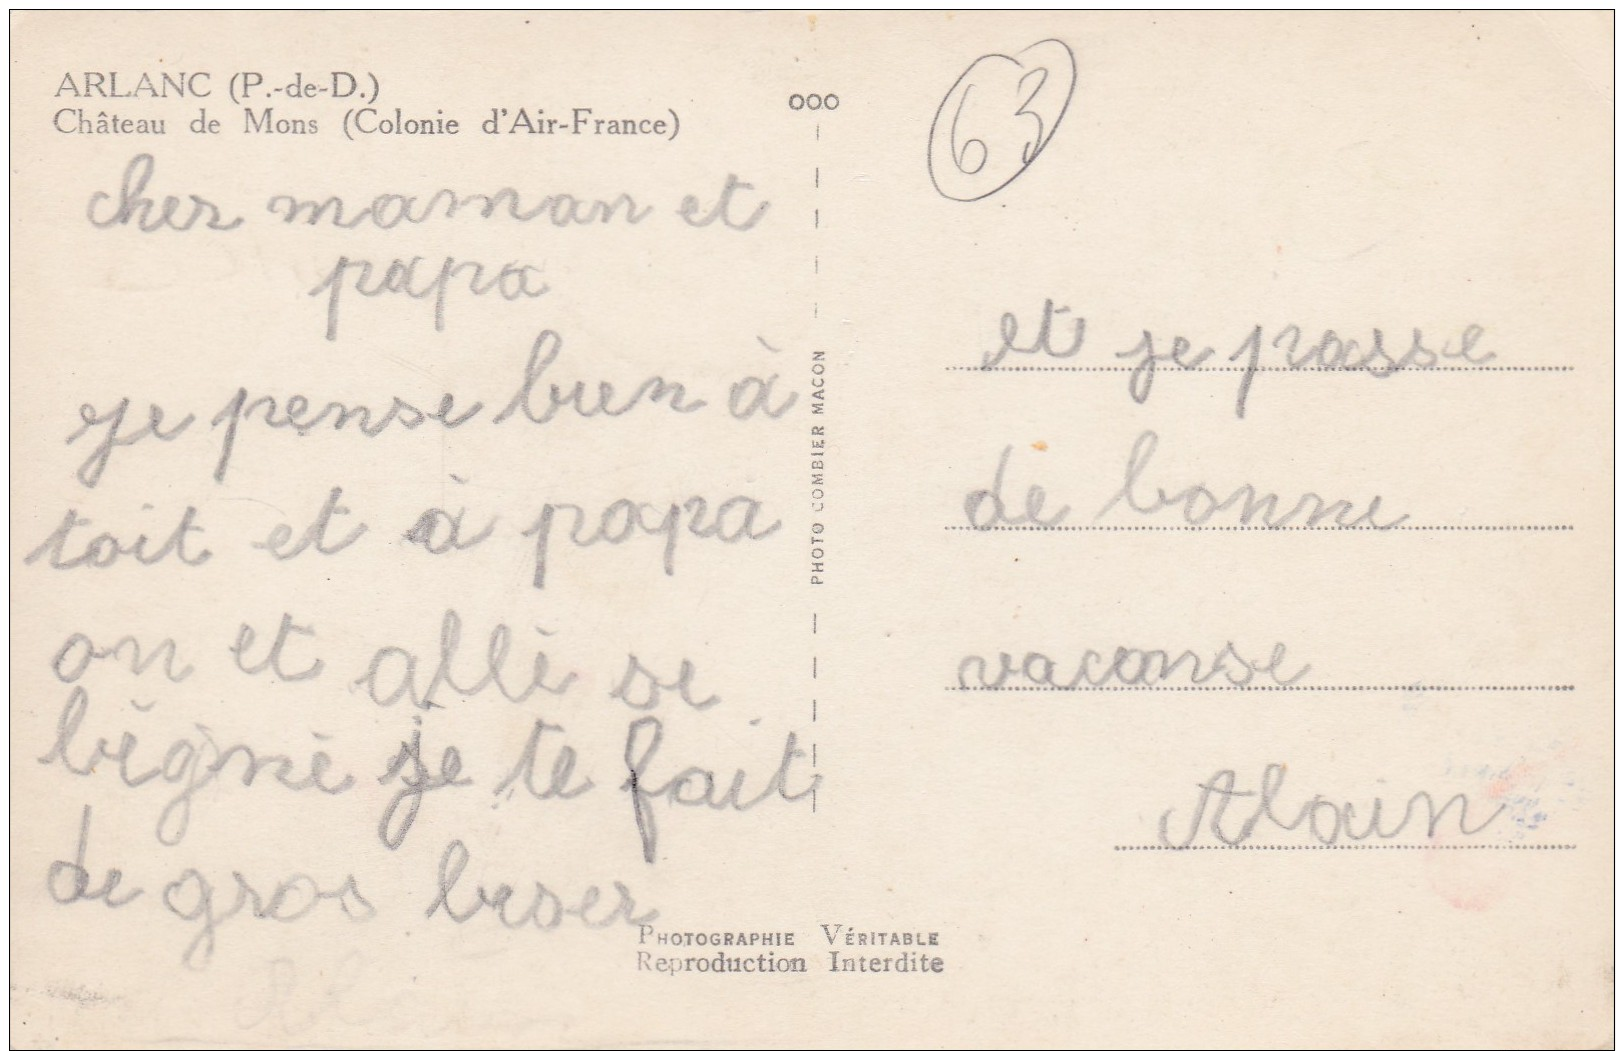 ARLANC (P.-de-D.)
Château de Mons (Colonie d'Air-France)
cher maman et
papa
je pense bien à
toit et à papa
on et allè se
bègnè je te fait
de gros biser
ooo
PHOTO COMBIER MACON
63
et je passe
de bonne
vacanse
Alain
PHOTOGRAPHIE VÉRITABLE
Reproduction Interdite